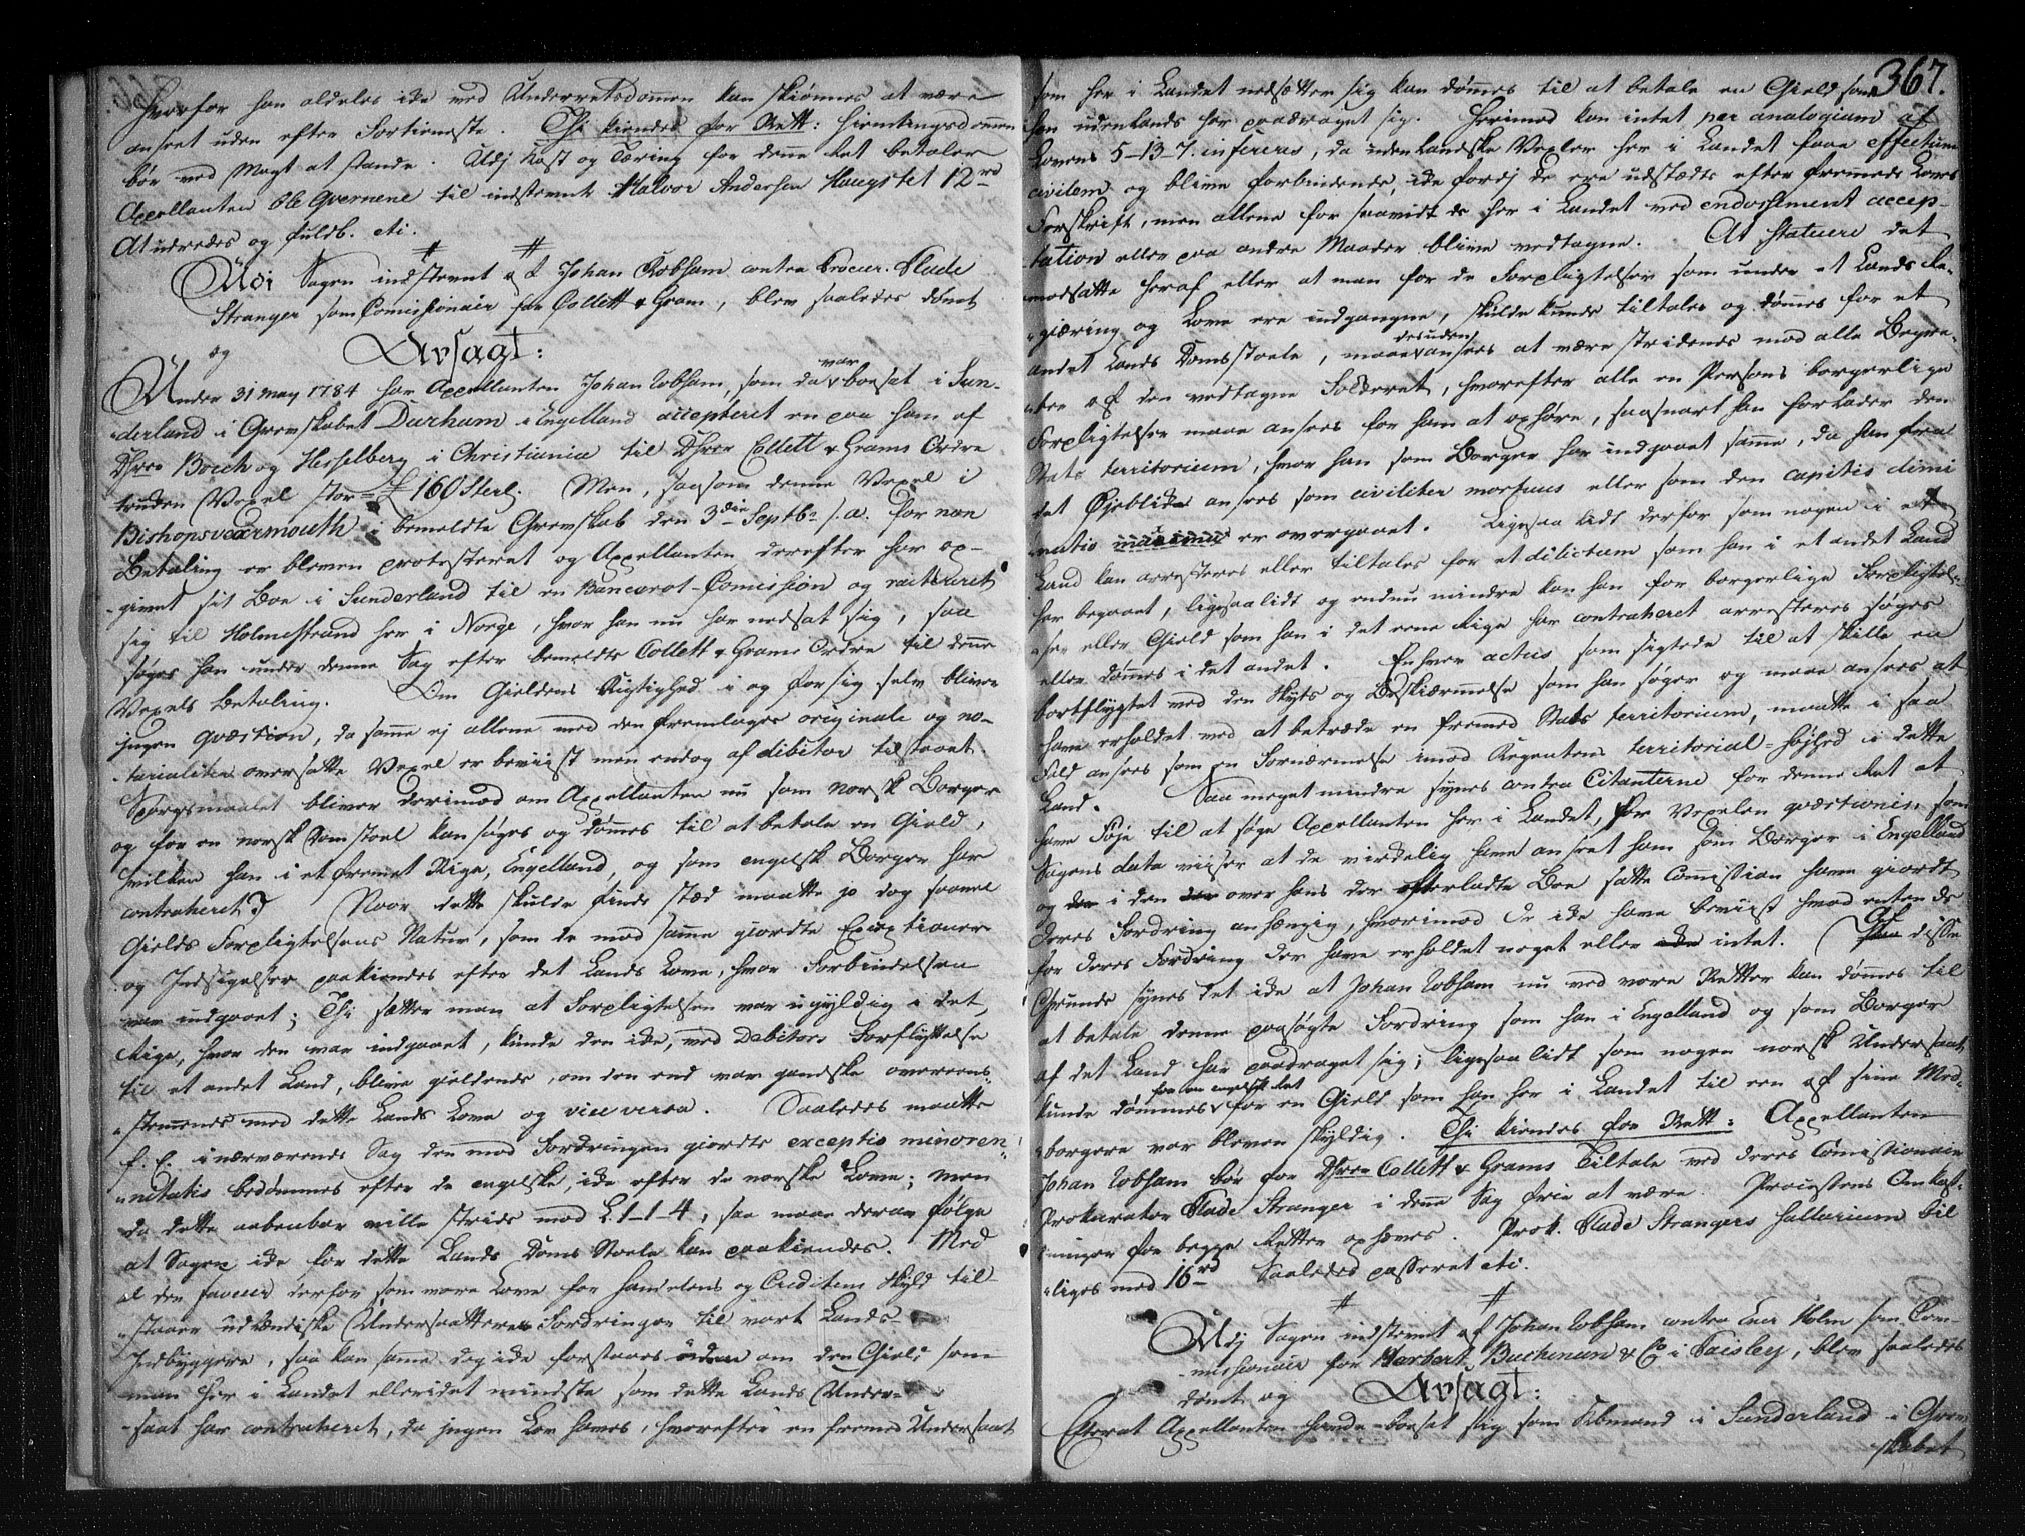 hvorfor han aldeles icke ved Underretsdommen kan skiønnes at være
anseet uden efter Fortieneste. Thi kiendes for Rett: Hiemtingsdommen
bør ved Magt at stande. Udj Kost og Tæring for denne Ret betaler
Appellanten Ole Gvernene til indstevnte Halvor Andersen Haugstet 12 rd
At udredes og fuldb. etc.
Udi Sagen indstevnt af Johan Robsham contra Procur. Flade
Stranger som Comissionair for Collett & Gram, blev saaledes dømt
og Avsagt:
Under 31 may 1784 har Appellanten Johan Robsham, som da var boesat i Sun-
derland i Grevskabet Durham i Engelland accepteret en paa ham af
Dhrr. Boeck og Hesselberg i Christiania til Dhrr Collett & Grams Ordre
trukken Vexel stor £ 160 Sterl. Men, saasom denne Vexel i
Bishopsvearmouth i bemeldte Grevskab den 3die Septbr s.a. for non
Betaling er bleven protesteret og Appellanten derefter har op-
givet sit Boe i Sunderland til en Bancerot-Comission og reitereret
sig til Holmestrand her i Norge, hvor han nu har nedsat sig, saa
søges han under denne Sag efter bemeldte Collett & Grams Ordre til denne
Vexels Betaling. Om Gieldens Rigtighed i og for sig selv bliver
jngen qvæstion, da samme ej allene med den fremlagde originale og no-
tarialiter oversatte Vexel er beviist men endog af debitor tilstaaet.
Spørgsmaalet bliver derimod om Appellanten nu som norsk Borger
og for en norsk Domstoel kan søges og dømmes til at betale en Gield,
hvilken han i et fremmet Rige, Engelland, og som engelsk Borger har
contraheret? Naar dette skulde finde stæd maatte jo dog saavel
Gields Forpligtelsens Natur, som de mod samme giordte Exceptioner
og Indsigelser paakiendes efter det Lands Love, hvor Forbindelsen
var indgaaet; Thi sætter man at Forpligtelsen var ugyldig i det
Rige, hvor den var indgaaet, kunde den icke, ved Debitors Forflyttelse
til et andet Land, blive gieldende, om den end var gandske overeens-
stemmende med dette Lands Love og vice versa. Saaledes maatte
f. E. i nærværende Sag den mod Fordringen giordte exceptio minoren-
netatis bedømmes efter de engelske, icke efter de norske Love; men
da dette aabenbar ville stride mod L. 1-1-4, saa maae deraf følge
at Sagen icke for dette Lands Doms Stoele kan paakiendes. Med
al den faveur derfor som vore Love for Handelens og Creditens Skyld til-
staaer udlændiske Undersaatteres Fordringer til vort Lands
Indbyggere, saa kan samme dog icke forstaaes uden om den Gield som
man her i Landet eller i det mindste som dette Lands Under-
saat har contraheret, da jngen Lov haves, hvorefter en fremmed Undersaat
367.
som her i Landet nedsætter sig kan dømmes til at betale en Gield som
han udenlands har paadraget sig. Herimod kan intet per analogiam af
Lovens 5-13-7. infereres, da udenlandske Vexler her i Landet faae effectum
civilem og blive forbindende, icke fordj de ere udstædte efter fremmede Lovs
Forskrift, men allene for saavidt de her i Landet ved endossement accep-
tation eller paa andre Maader blive vedtagne. At statuere det
modsatte heraf eller at man for de Forpligtelser som under et Lands Re-
giæring og Love ere indgangne, skulde kunde tiltales og dømmes for et
andet Lands Domsstoele, maae desuden ansees at være stridende mod alle Begre-
ber af den vedtagne Folkeret, hvorefter alle en Persons borgerlige
Forpligtelser maae ansees for ham at ophøre, saasnart han forlader den
Stats territorium, hvor han som Borger har indgaaet samme, da han fra
det Øjeblik ansees som civiliter mortuus eller som den capitis dimi
nutio maxima er overgaaet. Ligesaa lidt derfor som nogen i et
Land kan arresteres eller tiltales for et delictum som han i et andet Land
har begaaet, ligesaalidt og endnu mindre kan han for borgerlige Forpligtel-
ser eller Gield som han i det eene Rige har contraheret arresteres søges
eller dømmes i det andet. Enhver actus som sigtede til at skille en
bortflygtet ved den Skyts og Beskiærmelse som han søger og maae ansees at
have erholdet ved at betræde en fremmed Stats territorium, maatte i saa
Fald ansees som en Fornærmelse imod Regentens territorial-Højhed i dette
Land. Saa meget mindre synes contra Citanterne for denne Ret at
have Føje til at søge Appellanten her i Landet, for Vexelen qvæstionis, som
Sagens data viiser at de virkelig have anseet ham som Borger i Engelland
og i den over hans der efterladte Boe satte Commission have giordt
deres Fordring anhængig, hvorimod De icke have beviist hvad enten de
for deres Fordring der have erholdet noget eller intet. Af disse
Grunde synes det icke at Johan Robsham nu ved vore Retter kan dømmes til
at betale denne paasøgte Fordring som han i Engelland og som Borger
af det Land har paadraget sig; ligesaalidt som nogen norsk Undersaat
kunde dømmes for en engelsk Ret for en Gield som han her i Landet til een af sine Med-
borgere var bleven skyldig. Thi kiendes for Rett: Appellanten
Johan Robsham bør for Dhrr Collett & Grams Tiltale ved deres Comissionair
Prokurator Flade Stranger i denne Sag frie at være. Processens Omkost-
ninger for begge Retter ophæves. Prok. Flade Strangers Sallarium bil-
liges med 16 rd Saaledes passeret etc.
Udj Sagen indstevnt af Johan Robsham contra Ener Holm som Com-
missionair for Herbert, Buchenan & Co i Paisley, blev saaledes
dømt og Avsagt:
Efterat Appellanten havde boesat sig som Kiøbmand i Sunderland i Grev
skabet